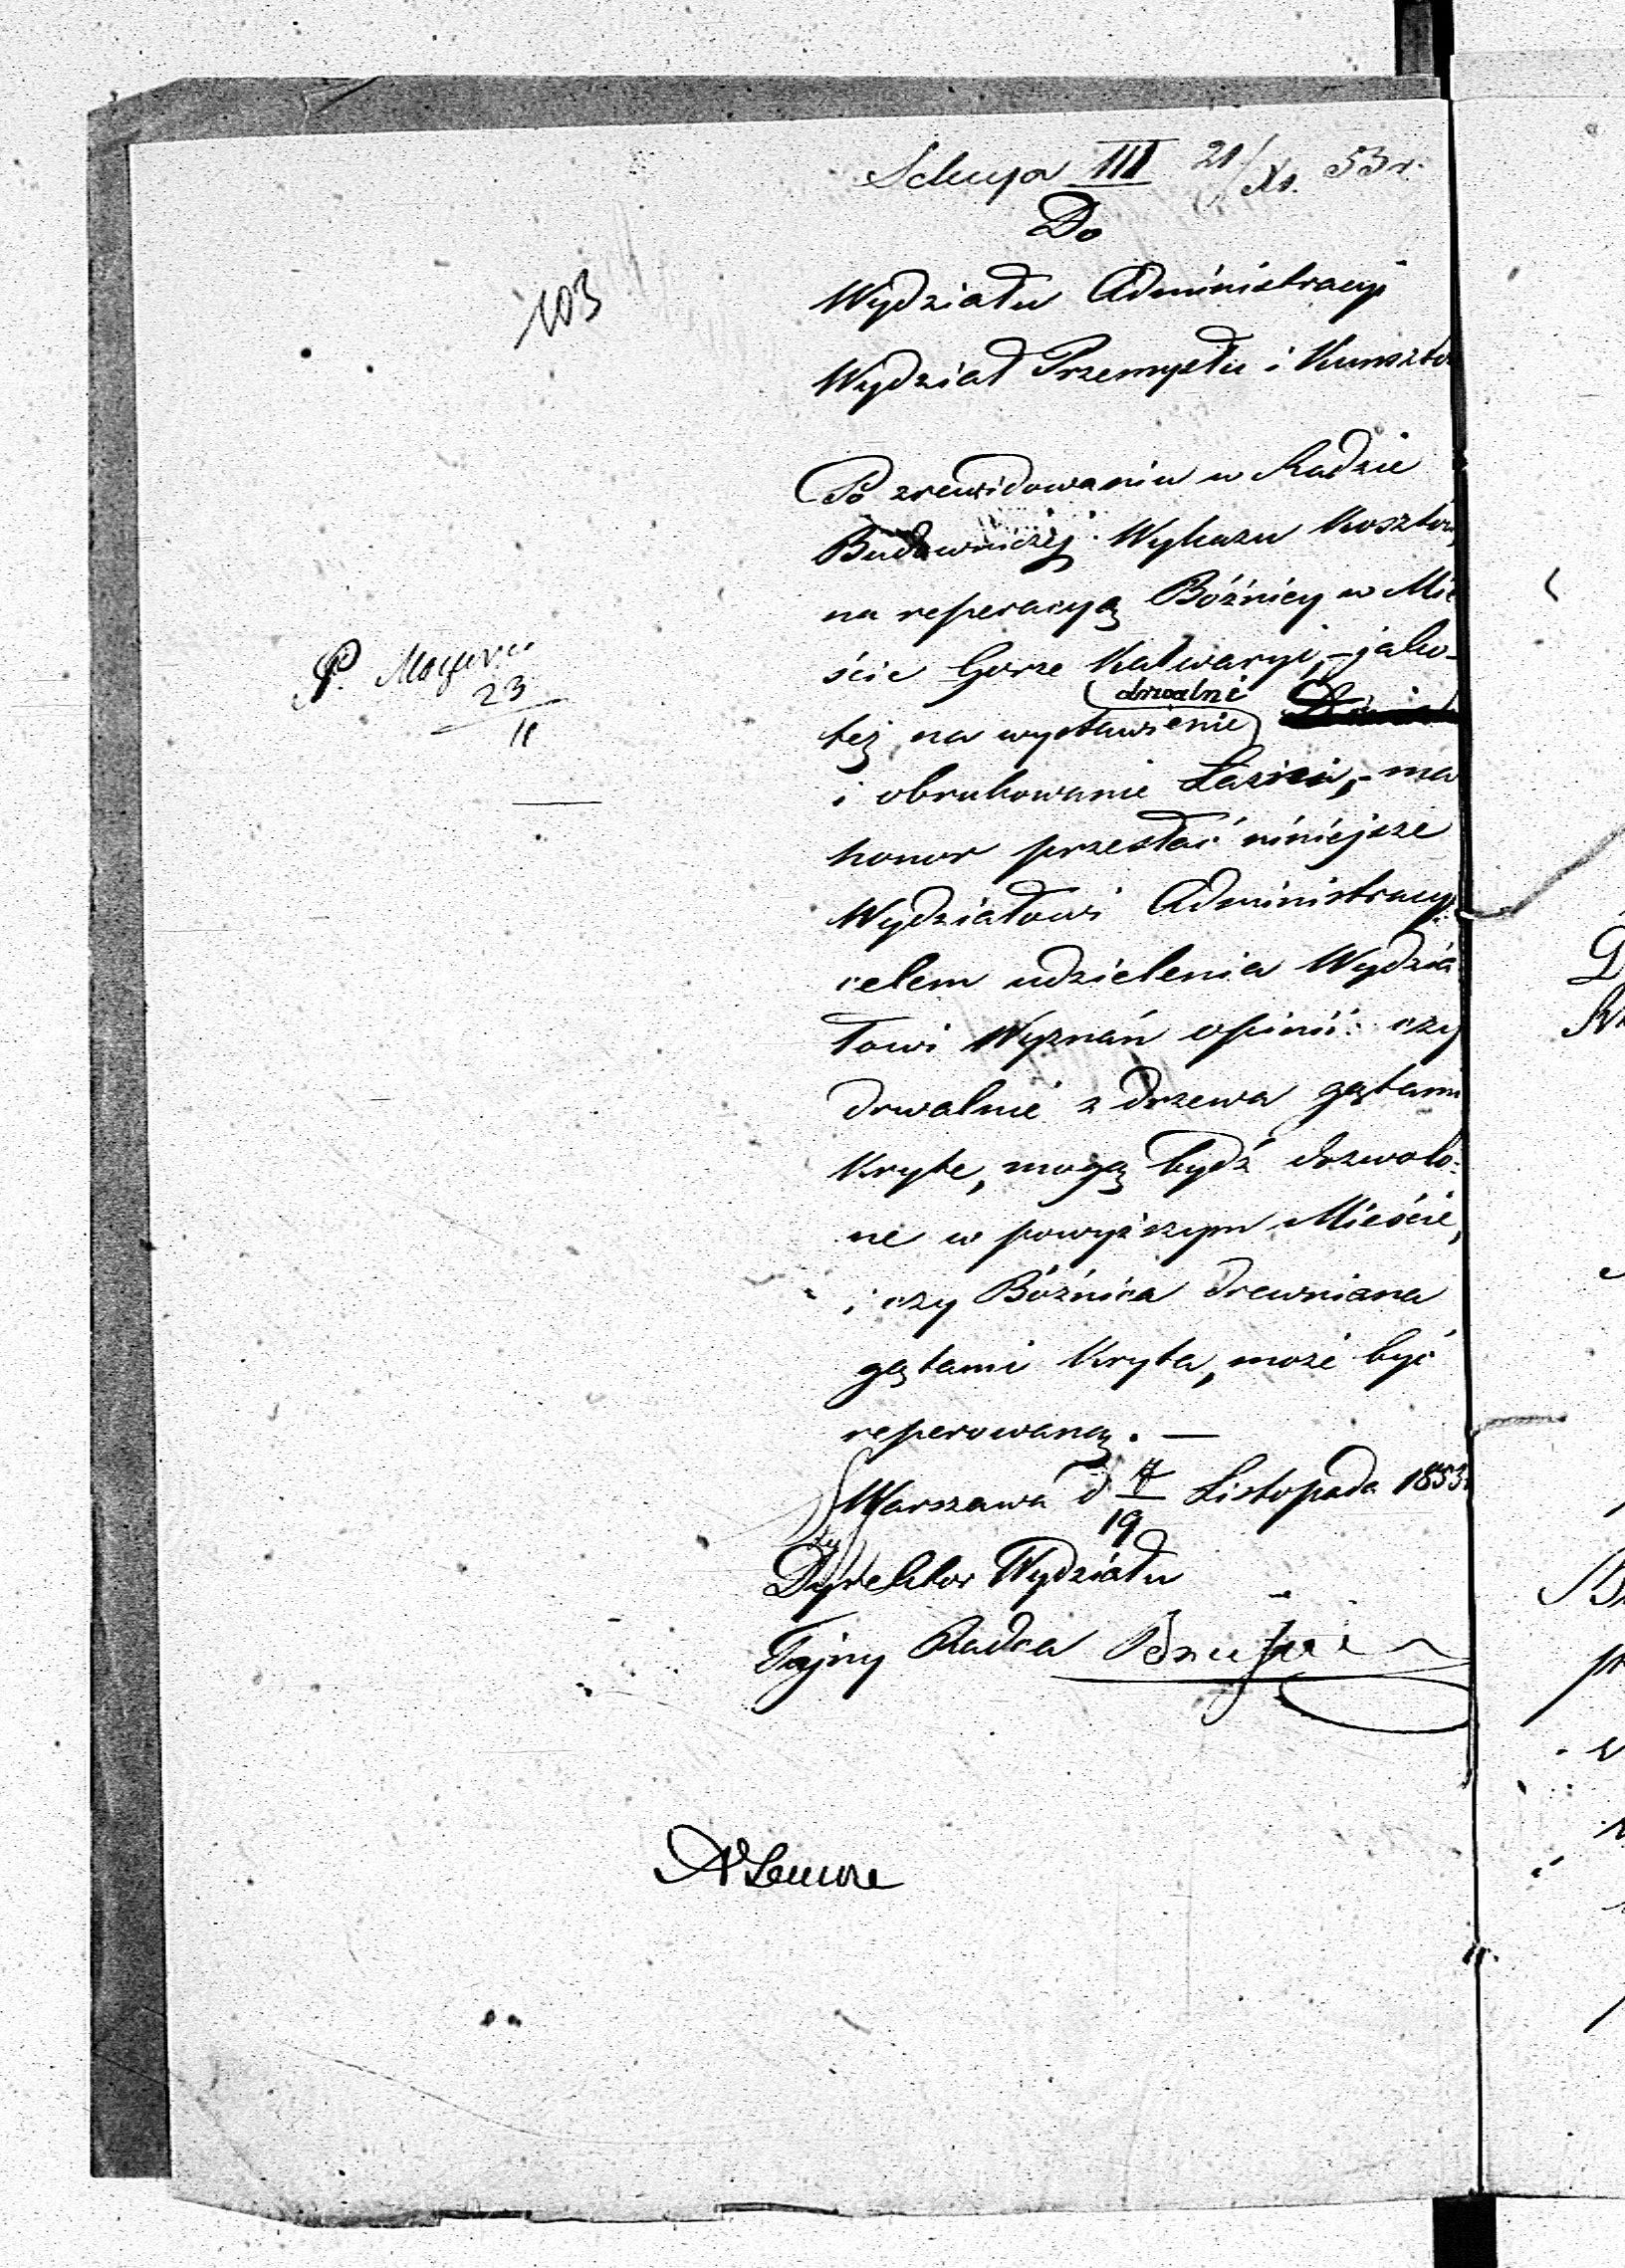 Sekcya III 21/XI. 53 r.
Do
103
Wydziału Administracyi
Wydział Przemysłu i Kunsztów
Po zrewidowaniu w Radzie
Budowniczéj Wykazu Kosztów
na reperacyą Bóźnicy w Mie
ście Gorze Kalwaryi, – jako-
drwalni
też na wystawienie
i obrukowanie Łazni, – ma
honor przesłać niniejsze
Wydziałowi Administracyi
celem udzielenia Wydzia
łowi Wyznań opinii: czy
drwalnie z drzewa gątami
kryte, mogą bydź dozwolo-
ne w powyższym Mieście,
i czy Bóźnica drewniana
gątami kryta, może być
reperowaną. —
Warszawa d 7/19 Listopada 1853
Dyrektor Wydziału
Tajny Radca
P.
23
11